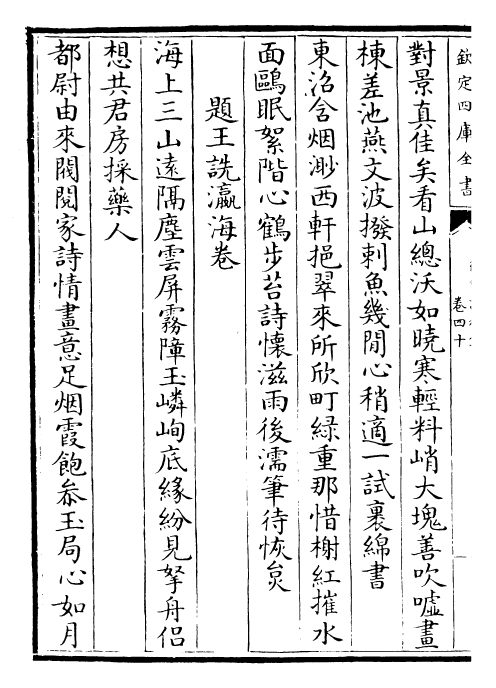 欽定四庫全書
卷四十
對景真佳矣看山總沃如曉寒輕料峭大塊善吹噓畫
棟差池燕文波撥剌魚幾閒心稍適一試裹綿書
東沼含烟渺西軒挹翠來所欣町緑重那惜榭紅摧水
面鷗眠絮階心鶴步苔詩懷滋雨後濡筆待恢炱
題王詵瀛海卷
海上三山遠隔塵雲屏霧障玉嶙峋底緣紛見拏舟侣
想共君房採藥人
都尉由來閥閱家詩情畫意足烟霞飽叅玉局心如月